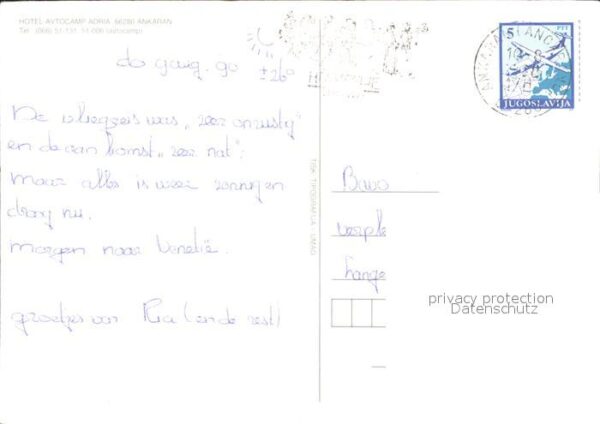 HOTEL AVTOCAMP ADRIA 66280 ANKARAN
Tel. (066) 51-131
do 9 aug. 90
± 26°
De vliegreis was „zeer onrustig"
en de aankomst „zeer nat".
maar alles is weer zonnig en
droog nu.
morgen naar Venetië.
groetjes van Ria (en de rest)
TISK: TIPOGRAFIJA - UMAG
5
PTT
JUGOSLAVIJA
Bavo
verple
Lange
privacy protection
Datenschutz